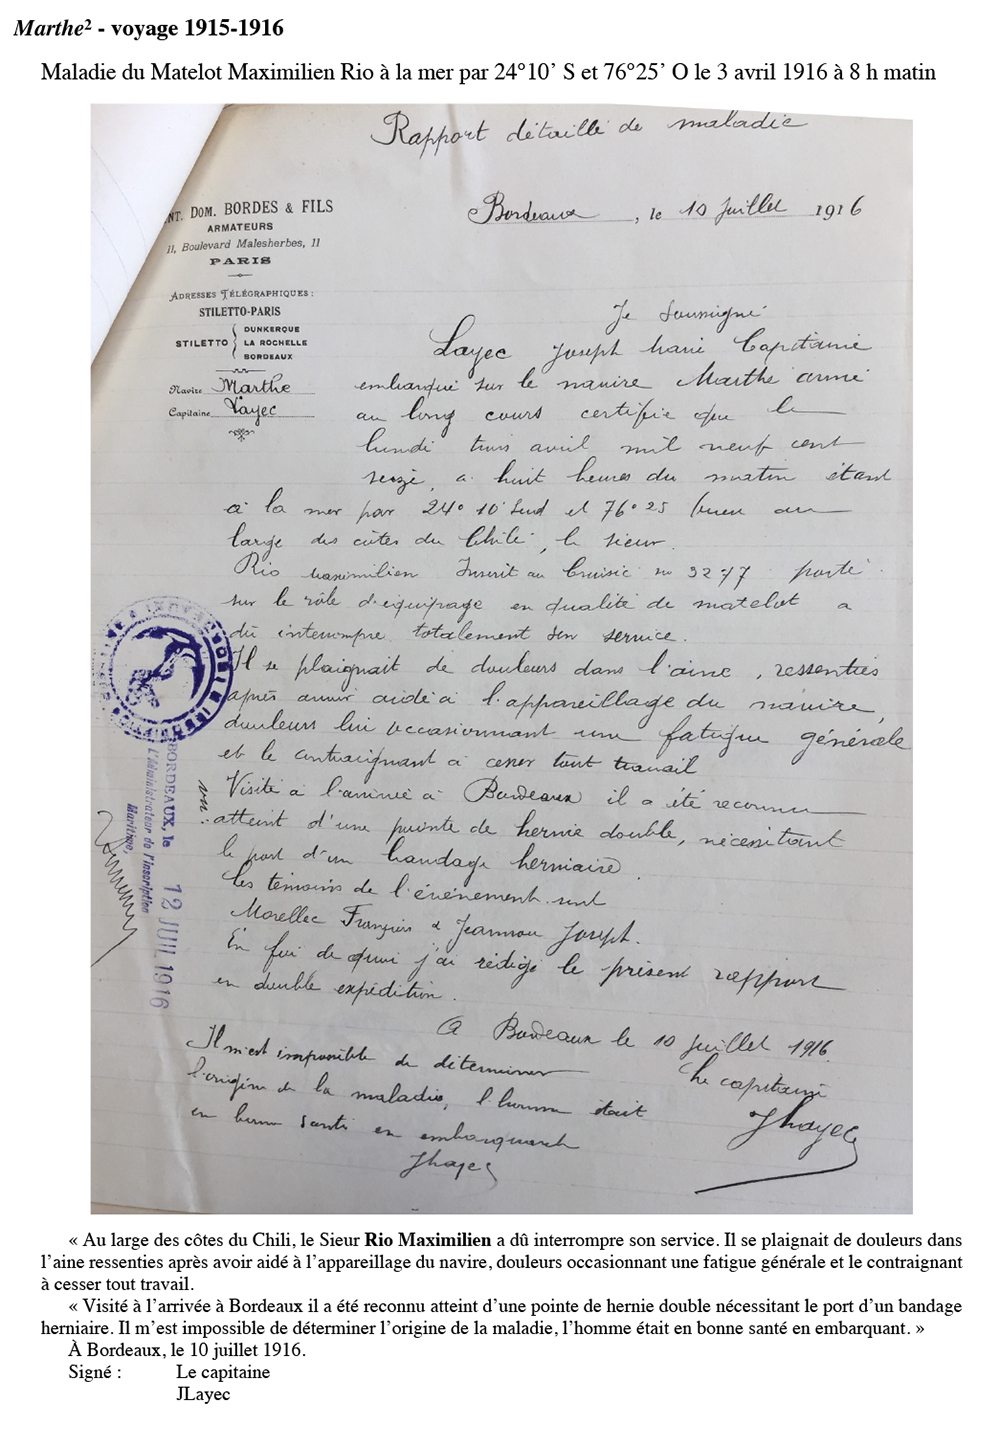 Marthe² - voyage 1915-1916
Maladie du Matelot Maximilien Rio à la mer par 24°10’ S et 76°25’ O le 3 avril 1916 à 8 h matin
Rapport détaillé de maladie
NT. DOM. BORDES & FILS
ARMATEURS
11, Boulevard Malesherbes, 11
PARIS
ADRESSES TÉLÉGRAPHIQUES :
STILETTO-PARIS
STILETTO { DUNKERQUE
LA ROCHELLE
BORDEAUX
Navire Marthe
Capitaine Layec
Bordeaux, le 10 Juillet 1916
Je soussigné
Layec Joseph Marie Capitaine
embarqué sur le navire Marthe armé
au long cours certifie que le
lundi trois avril mil neuf cent
seize, a huit heures du matin étant
à la mer par 24° 10' Sud et 76° 25 au
large des côtes du Chili, le sieur
Rio Maximilien Inscrit au Croisic no 3277 porté
sur le rôle d'équipage en qualité de matelot a
dû interrompre totalement son service.
Il se plaignait de douleurs dans l'aine, ressenties
après avoir aidé à l'appareillage du navire,
douleurs lui occasionnant une fatigue générale
et le contraignant à cesser tout travail
Visité à l'arrivée à Bordeaux il a été reconnu
atteint d'une pointe de hernie double, nécessitant
le port d'un bandage herniaire.
Les témoins de l'événement sont
Morellec François & Jeannou Joseph.
En foi de quoi j'ai rédigé le présent rapport
en double expédition.
A Bordeaux le 10 juillet 1916.
Le capitaine
JLayec
Il m'est impossible de déterminer
l'origine de la maladie, l'homme était
en bonne santé en embarquant
JLayec
vu :
BORDEAUX, le 12 JUIL 1916
L'Administrateur de l'Inscription
Maritime,
« Au large des côtes du Chili, le Sieur Rio Maximilien a dû interrompre son service. Il se plaignait de douleurs dans
l’aine ressenties après avoir aidé à l’appareillage du navire, douleurs occasionnant une fatigue générale et le contraignant
à cesser tout travail.
« Visité à l’arrivée à Bordeaux il a été reconnu atteint d’une pointe de hernie double nécessitant le port d’un bandage
herniaire. Il m’est impossible de déterminer l’origine de la maladie, l’homme était en bonne santé en embarquant. »
À Bordeaux, le 10 juillet 1916.
Signé : Le capitaine
JLayec